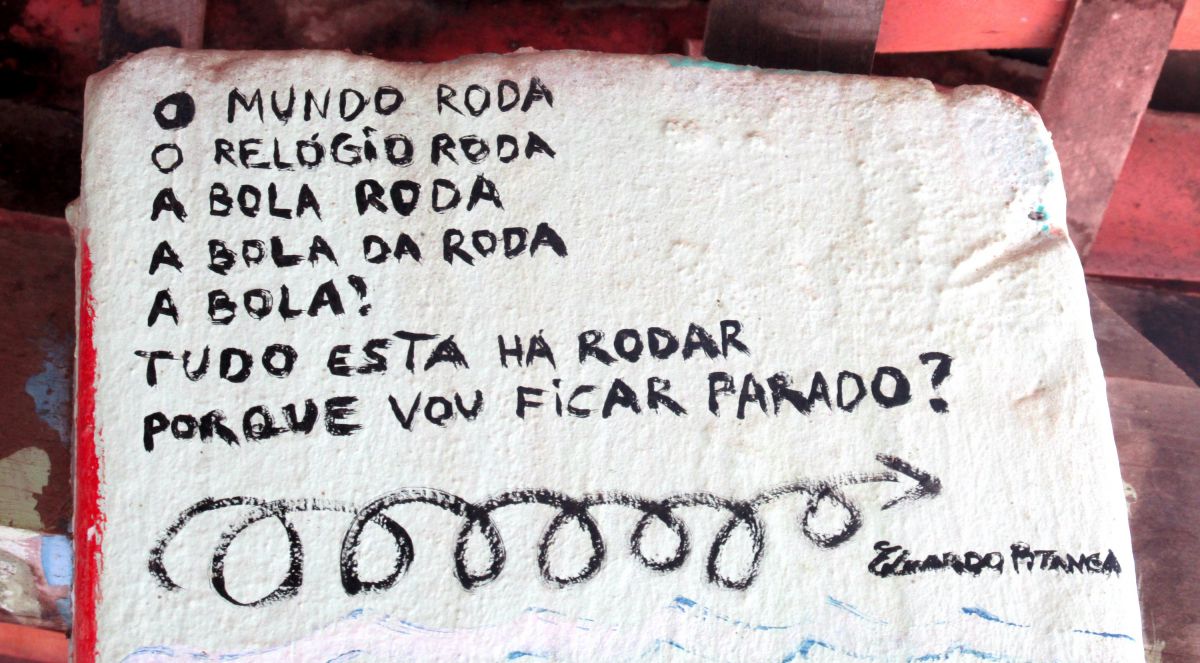 O MUNDO RODA
O RELÓGIO RODA
A BOLA RODA
A BOLA DA RODA
A BOLA?
TUDO ESTA HÁ RODAR
PORQUE VOU FICAR PARADO?
EDUARDO PITANGA